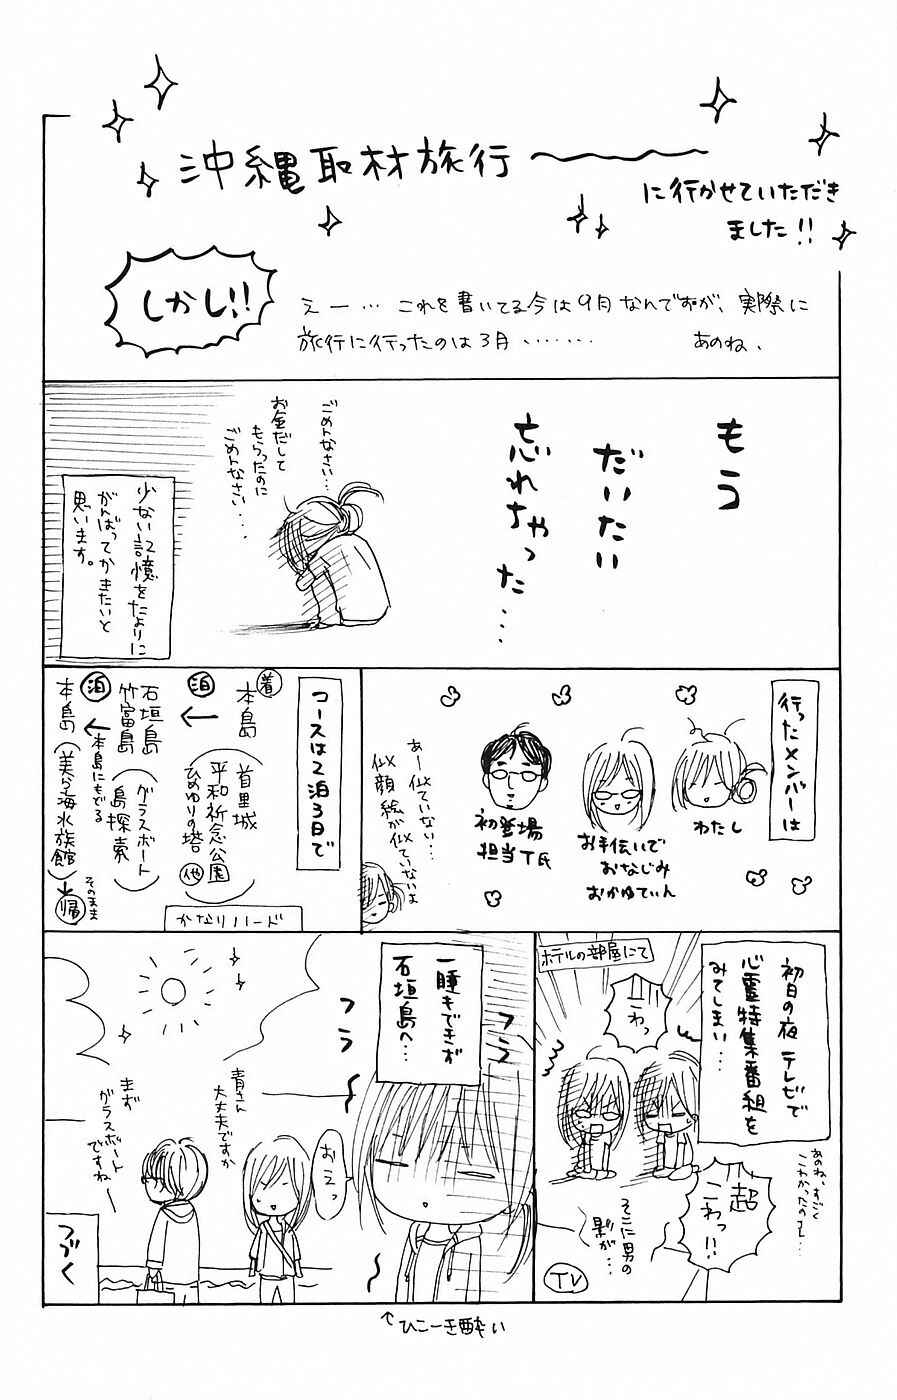 沖縄取材旅行〜
に行かせていただき
ました!!
しかし!!
えー…これを書いてる今は9月なんですが、実際に
旅行に行ったのは3月……
あのね、
もう
だいたい
忘れちゃった…
ごめんなさい…
お金だして
もらったのに
ごめんなさい…
少ない記憶をたよりに
がんばってかきたいと
思います。
行ったメンバーは
わたし
お手伝いで
おなじみ
おかゆてぃん
初登場
担当T氏
あー似ていない…
似顔絵が似ていないよ
コースは2泊3日で
着
本島
(首里城
平和祈念公園
ひめゆりの塔 他)
泊
←
石垣島
竹富島
(グラスボート
島探索)
泊
←
本島にもどる
本島
(美ら海水族館)
そのまま
→帰
かなりハード
初日の夜テレビで
心霊特集番組を
みてしまい…
ホテルの部屋にて
こわっ
超こわっ!!
あのね、すごく
こわかったの…
そこに男の
影が…
TV
一睡もできず
石垣島へ…
フラ
フラ
おえっ
青さん
大丈夫ですか
まず
グラスボート
ですねー
つづく
↑ひこーき酔い